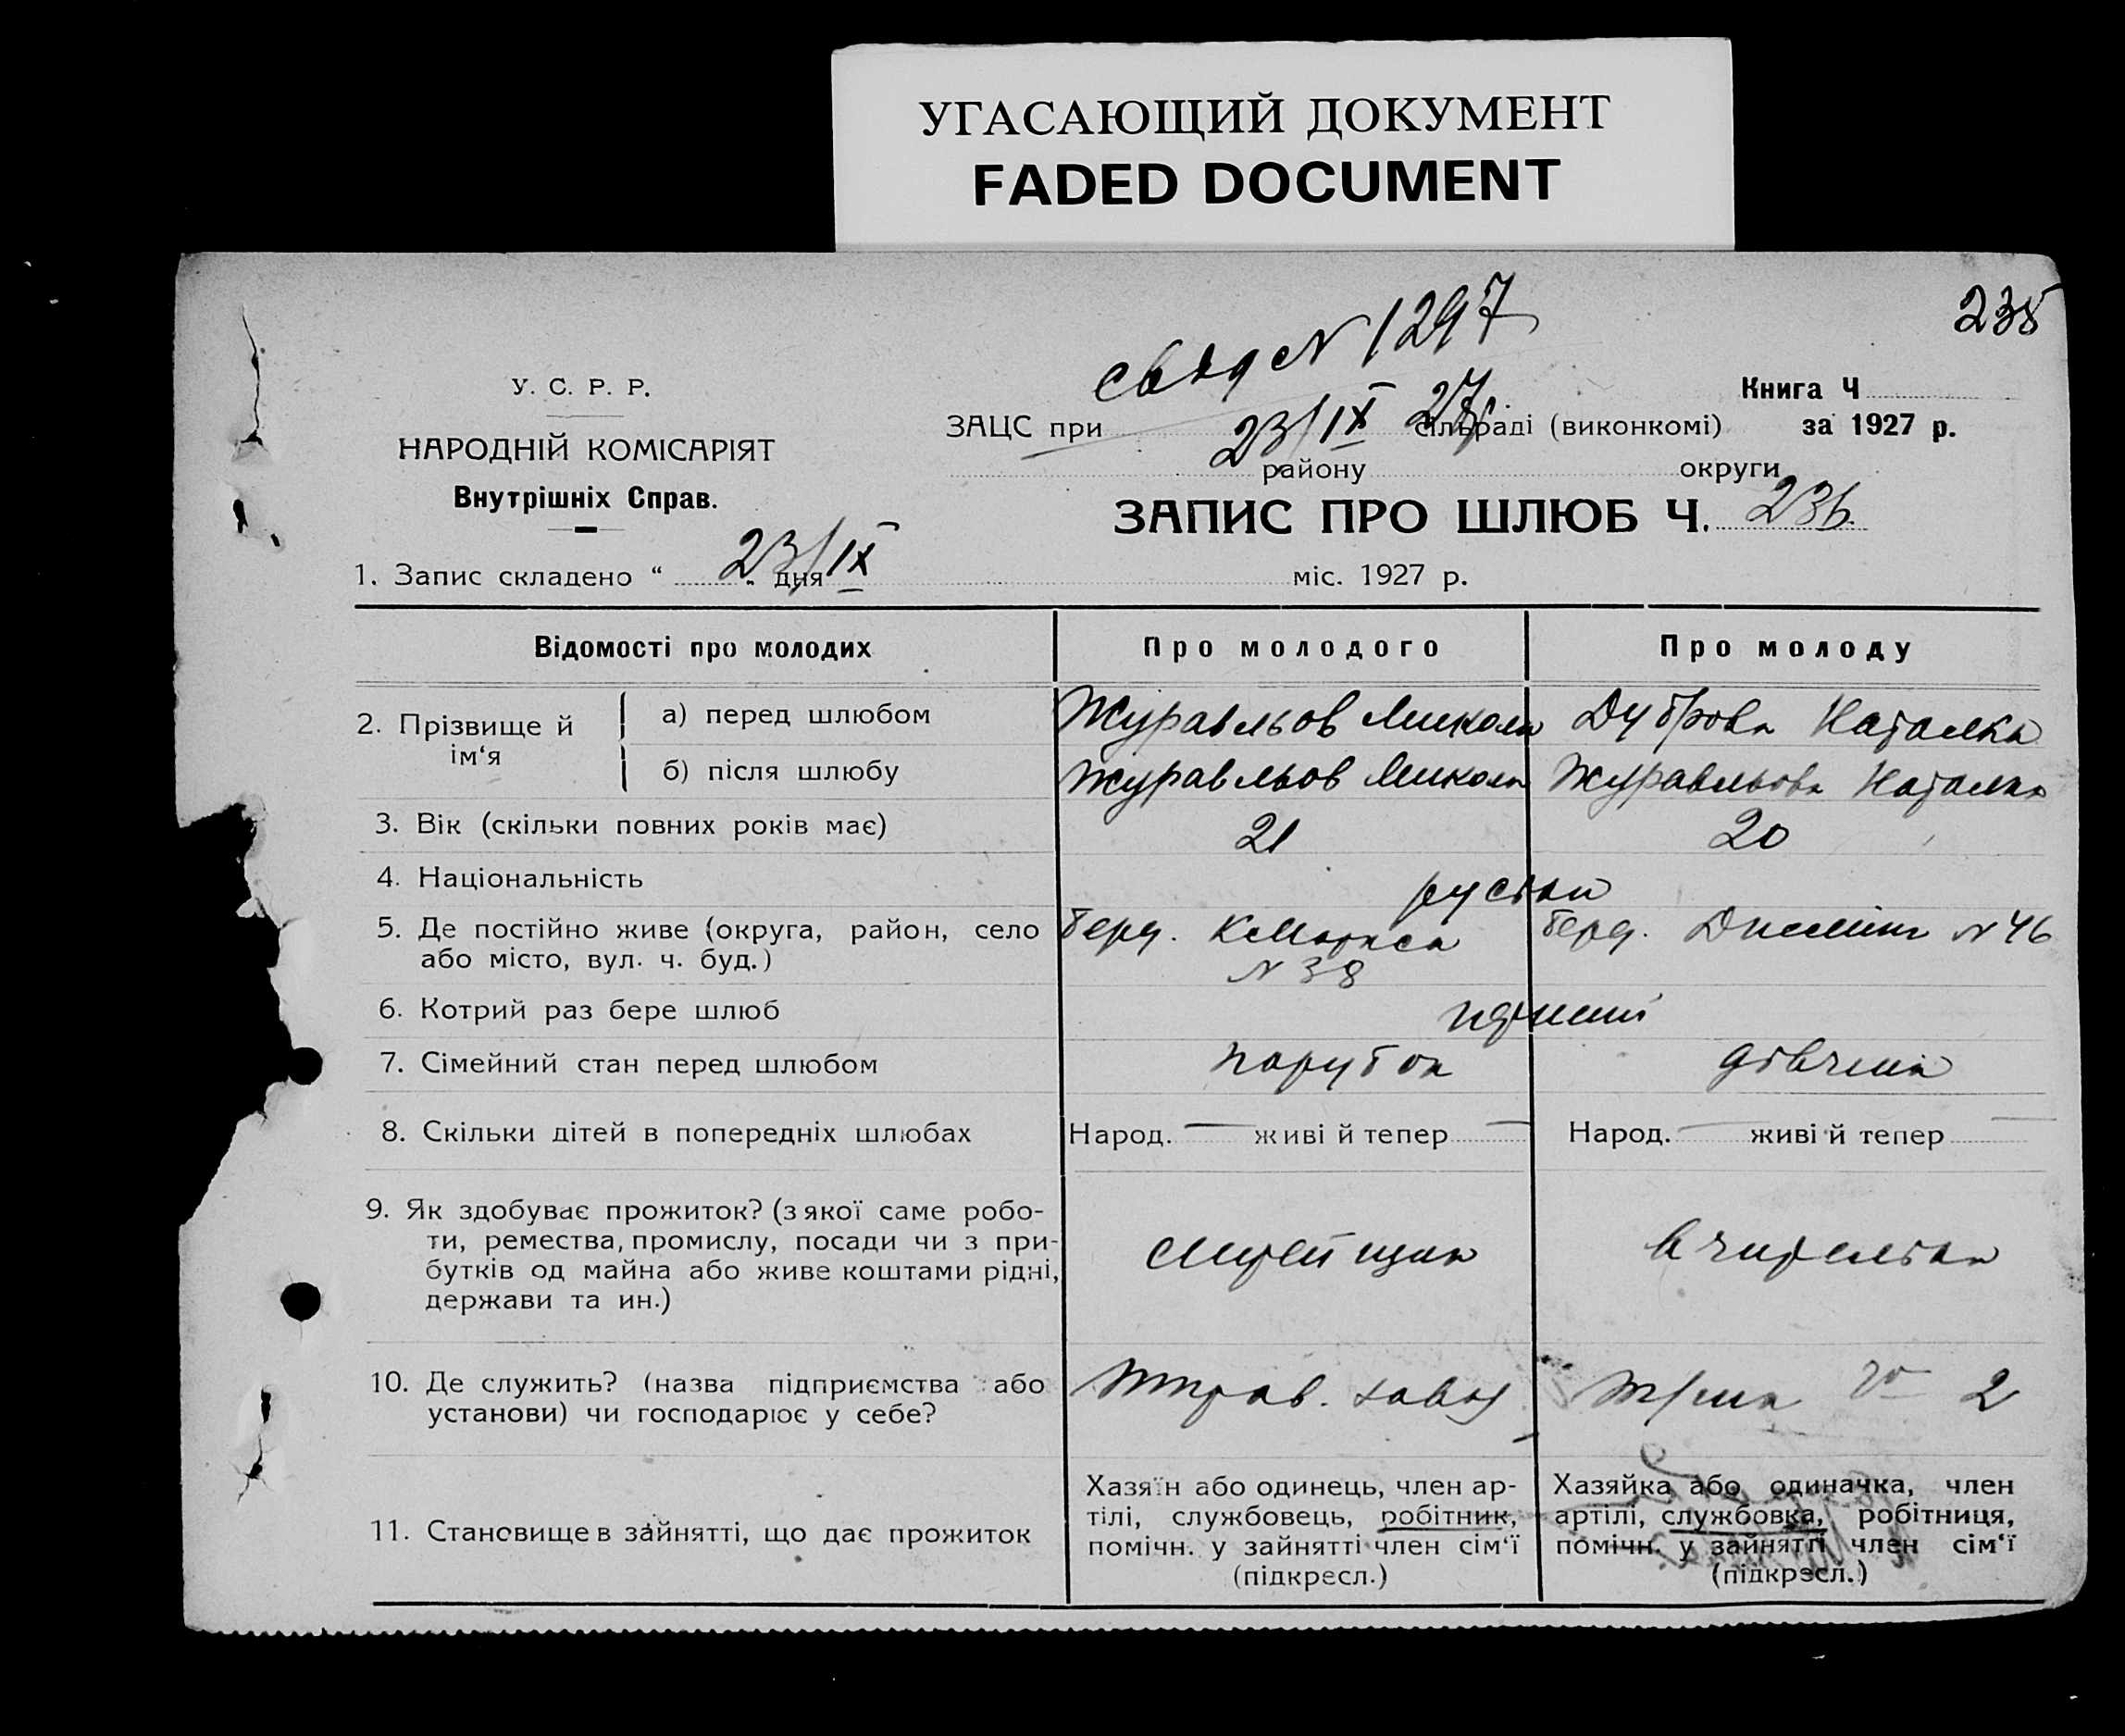 УГАСАЮЩИЙ ДОКУМЕНТ
FADED DOCUMENT
238
свид N 1297
23/IX 27
У. С. Р. Р.
НАРОДНІЙ КОМІСАРІЯТ
Внутрішніх Справ.
Книга Ч
за 1927 р.
ЗАЦС при сільраді (виконкомі)
району округи
ЗАПИС ПРО ШЛЮБ Ч. 236
1. Запис складено “ 23/IX „ дня міс. 1927 р.
Відомості про молодих Про молодого Про молоду
2. Прізвище й ім‘я
а) перед шлюбом Журавльов Микола Дуброва Наталка
б) після шлюбу Журавльов Микола Журавльова Наталка
3. Вік (скільки повних років має) 21 20
4. Національність руські
5. Де постійно живе (округа, район, село
або місто, вул. ч. буд.)
Берд. К Маркса
N 38
Берд. N 46
6. Котрий раз бере шлюб перший
7. Сімейний стан перед шлюбом парубок дівчина
8. Скільки дітей в попередніх шлюбах Народ. — живі й тепер — Народ. — живі й тепер —
9. Як здобуває прожиток? (з якої саме робо-
ти, ремества, промислу, посади чи з при-
бутків од майна або живе коштами рідні,
держави та ин.)
литейщик
вчителька
10. Де служить? (назва підприємства або
установи) чи господарює у себе?
завод
2
11. Становище в зайнятті, що дає прожиток
Хазяїн або одинець, член ар-
тілі, службовець, робітник,
помічн. у зайнятті член сім‘ї
(підкресл.)
Хазяйка або одиначка, член
артілі, службовка, робітниця,
помічн. у зайнятті член сім‘ї
(підкресл.)